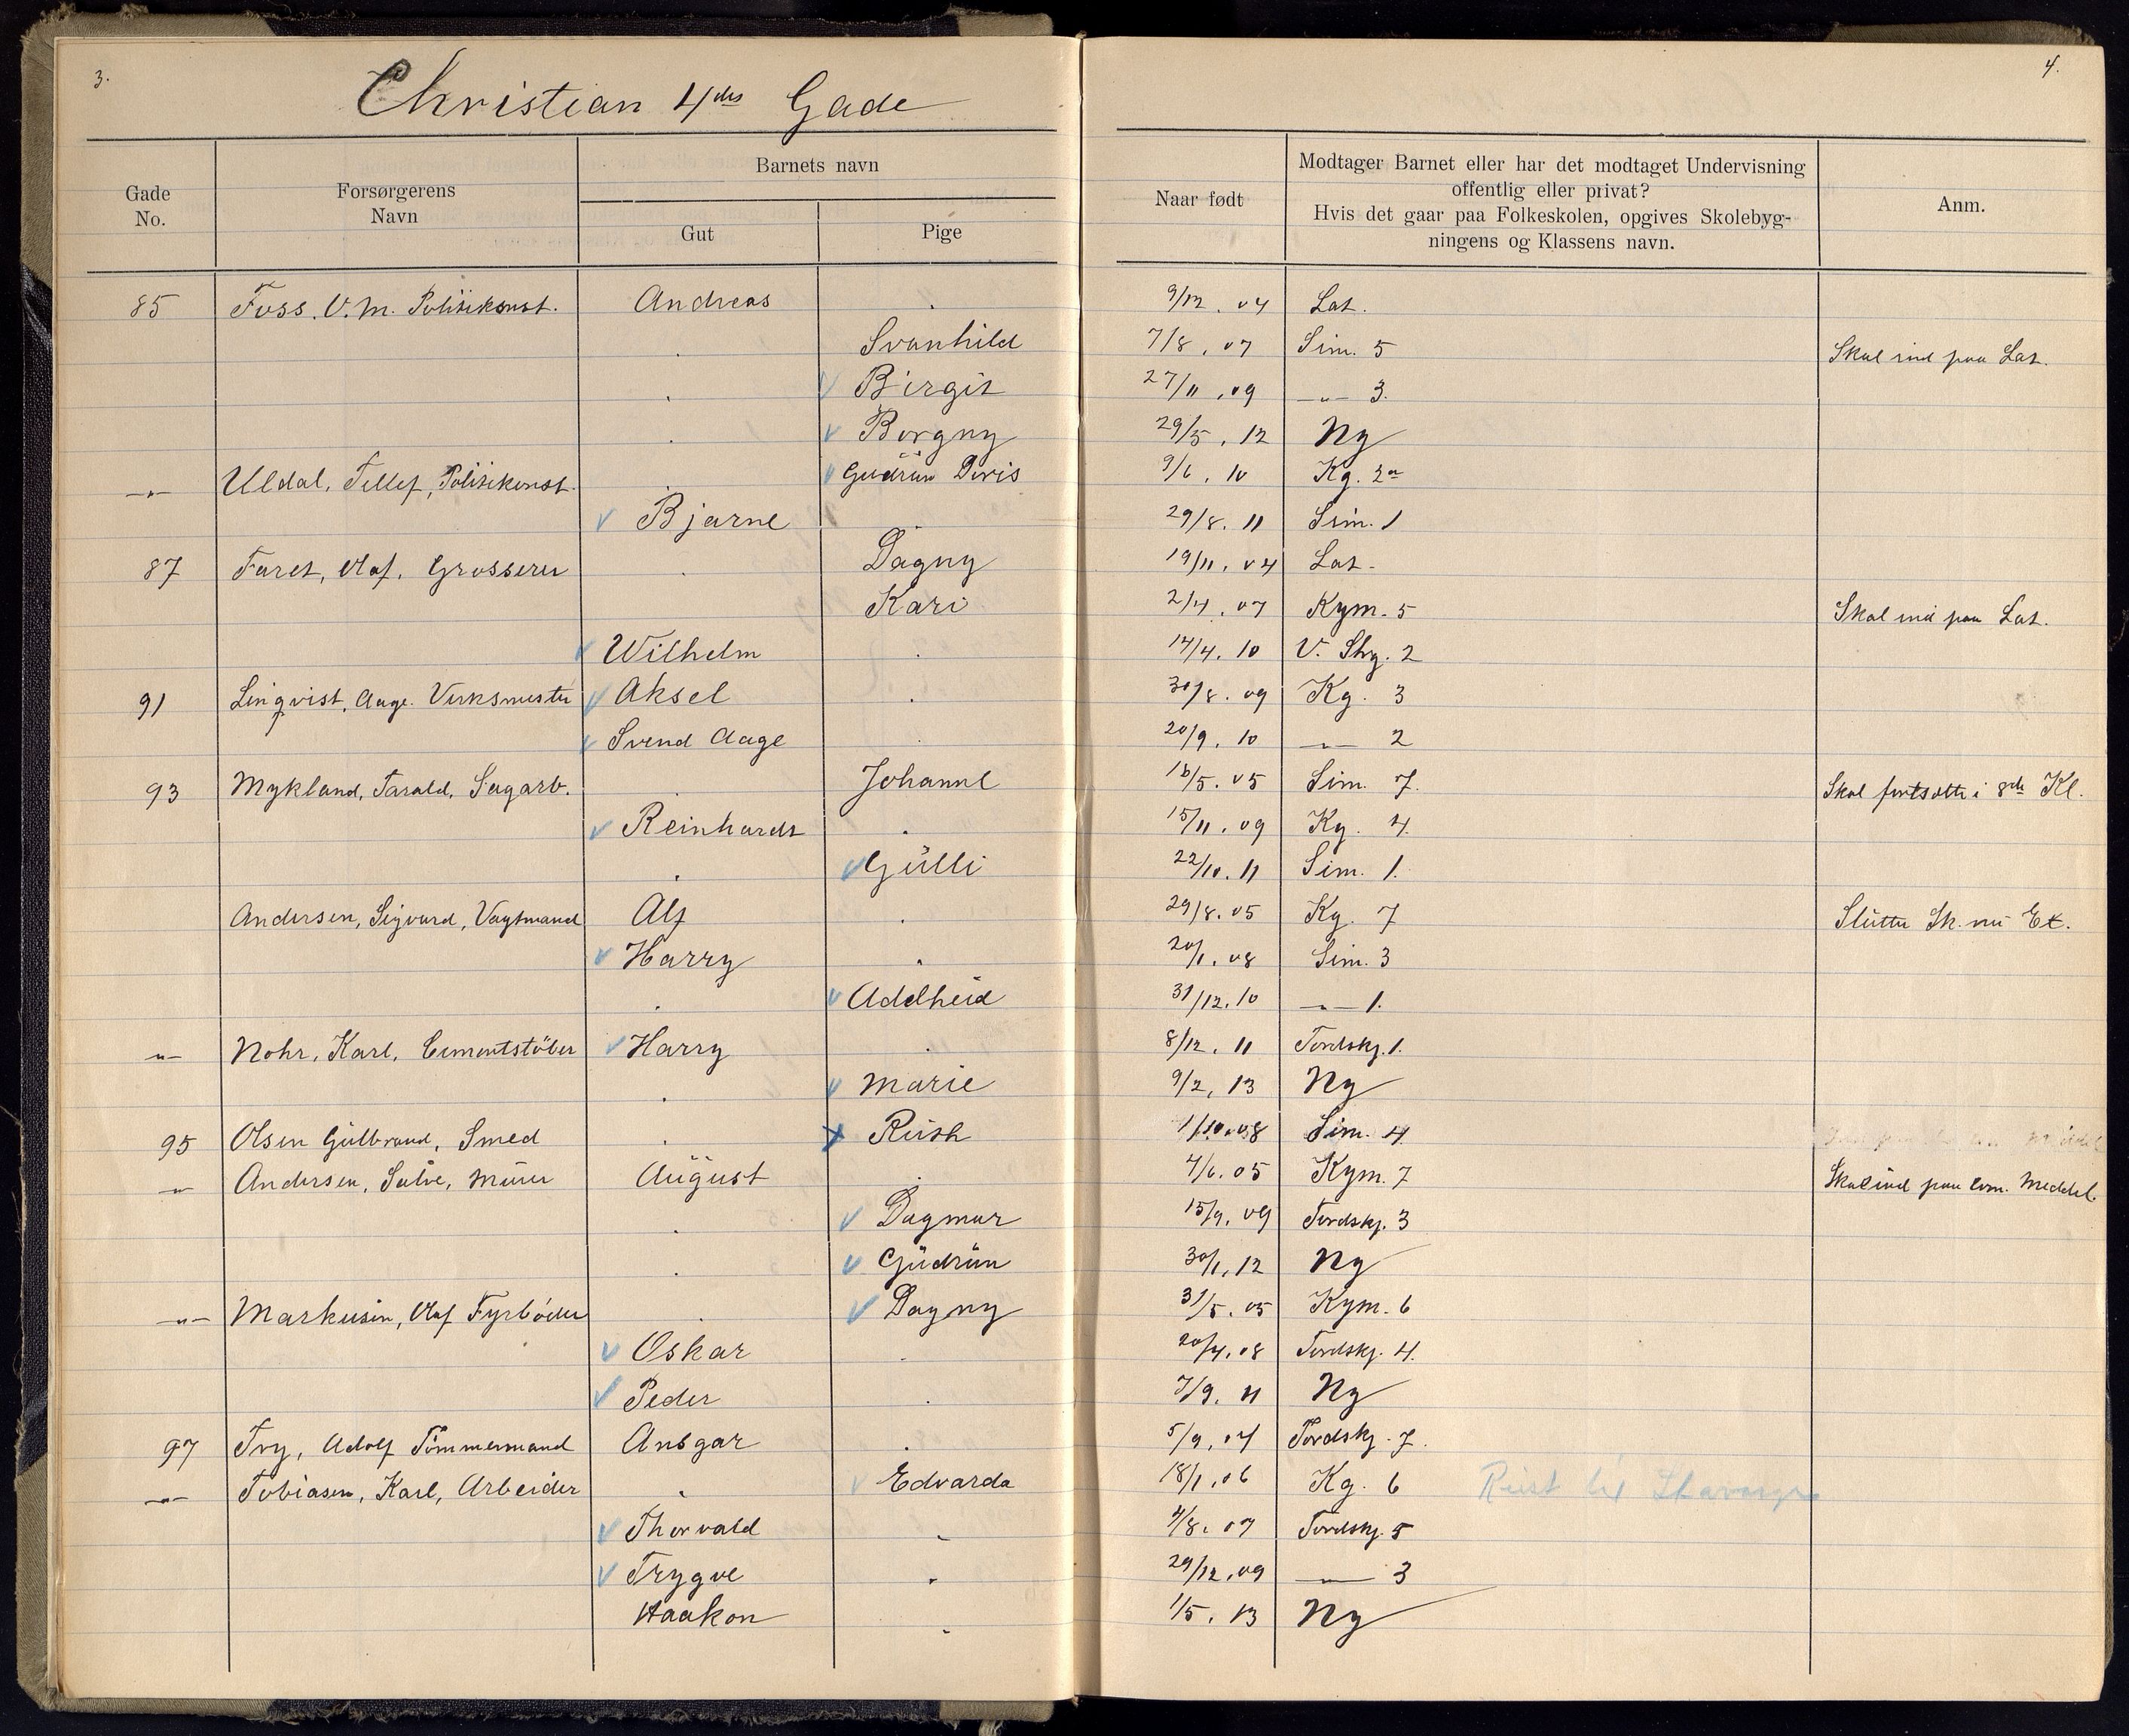 3.
4.
Christian 4des Gade
Gade No.
Forsørgerens Navn
Barnets navn
Gut
Pige
Naar født
Modtager Barnet eller har det modtaget Undervisning
offentlig eller privat?
Hvis det gaar paa Folkeskolen, opgives Skolebyg-
ningens og Klassens navn.
Anm.
85 Foss. O.M. Politikonst. Andreas 9/12. 04 Lat.
Svanhild 7/8. 07 Sim. 5 Skal ind paa Lat.
v Birgit 27/11. 09 -"- 3.
v Borgny 29/5. 12 Ny
-"- Uldal, Tellef, Politikonst. v Gudrun Doris 9/6. 10 Kg. 2a
v Bjarne 29/8. 11 Sim. 1
87 Faret, Olaf. Grosserer Dagny 19/11. 04 Lat.
Kari 2/4. 07 Kym. 5 Skal ind paa Lat.
v Wilhelm 14/4. 10 V. Shg. 2
91 Linqvist, Aage. Verksmester v Aksel 30/8. 09 Kg. 3
v Svend Aage 20/9. 10 -"- 2
93 Mykland, Tarald, Sagarb. Johanne 16/5. 05 Sim. 7. Skal fortsætte i 8de Kl.
v Reinhardt 15/11. 09 Kg. 4.
v Gulli 22/10. 11 Sim. 1.
Andersen, Sigvard, Vagtmand Alf 29/8. 05 Kg. 7 Slutter Sk. nu Ex.
v Harry 20/1. 08 Sim. 3
v Adelheid 31/12. 10 -"- 1.
-"- Nohr, Karl, Cementstöber v Harry 8/12. 11 Tordskj. 1.
v Marie 9/2. 13 Ny
95 Olsen Gulbrand, Smed x Ruth 1/10. 08 Sim. 4
-"- Andersen, Salve, Murer August 4/6. 05 Kym. 7 Skal ind paa Kom. Middel.
v Dagmar 15/9. 09 Tordskj. 3
v Gudrun 30/1. 12 Ny
-"- Markusen, Olaf Fyrbøder v Dagny 31/5. 05 Kym. 6
v Oskar 20/4. 08 Tordskj. 4.
v Peder 7/9. 11 Ny
97 Try, Adolf Tömmermand Ansgar 5/9. 04 Tordskj. 7.
-"- Tobiasen, Karl, Arbeider v Edvarda 18/1. 06 Kg. 6 Reist til Stavanger
v Thorvald 4/8. 07 Tordskj. 5
v Trygve 29/12. 09 -"- 3
Haakon 1/5. 13 Ny